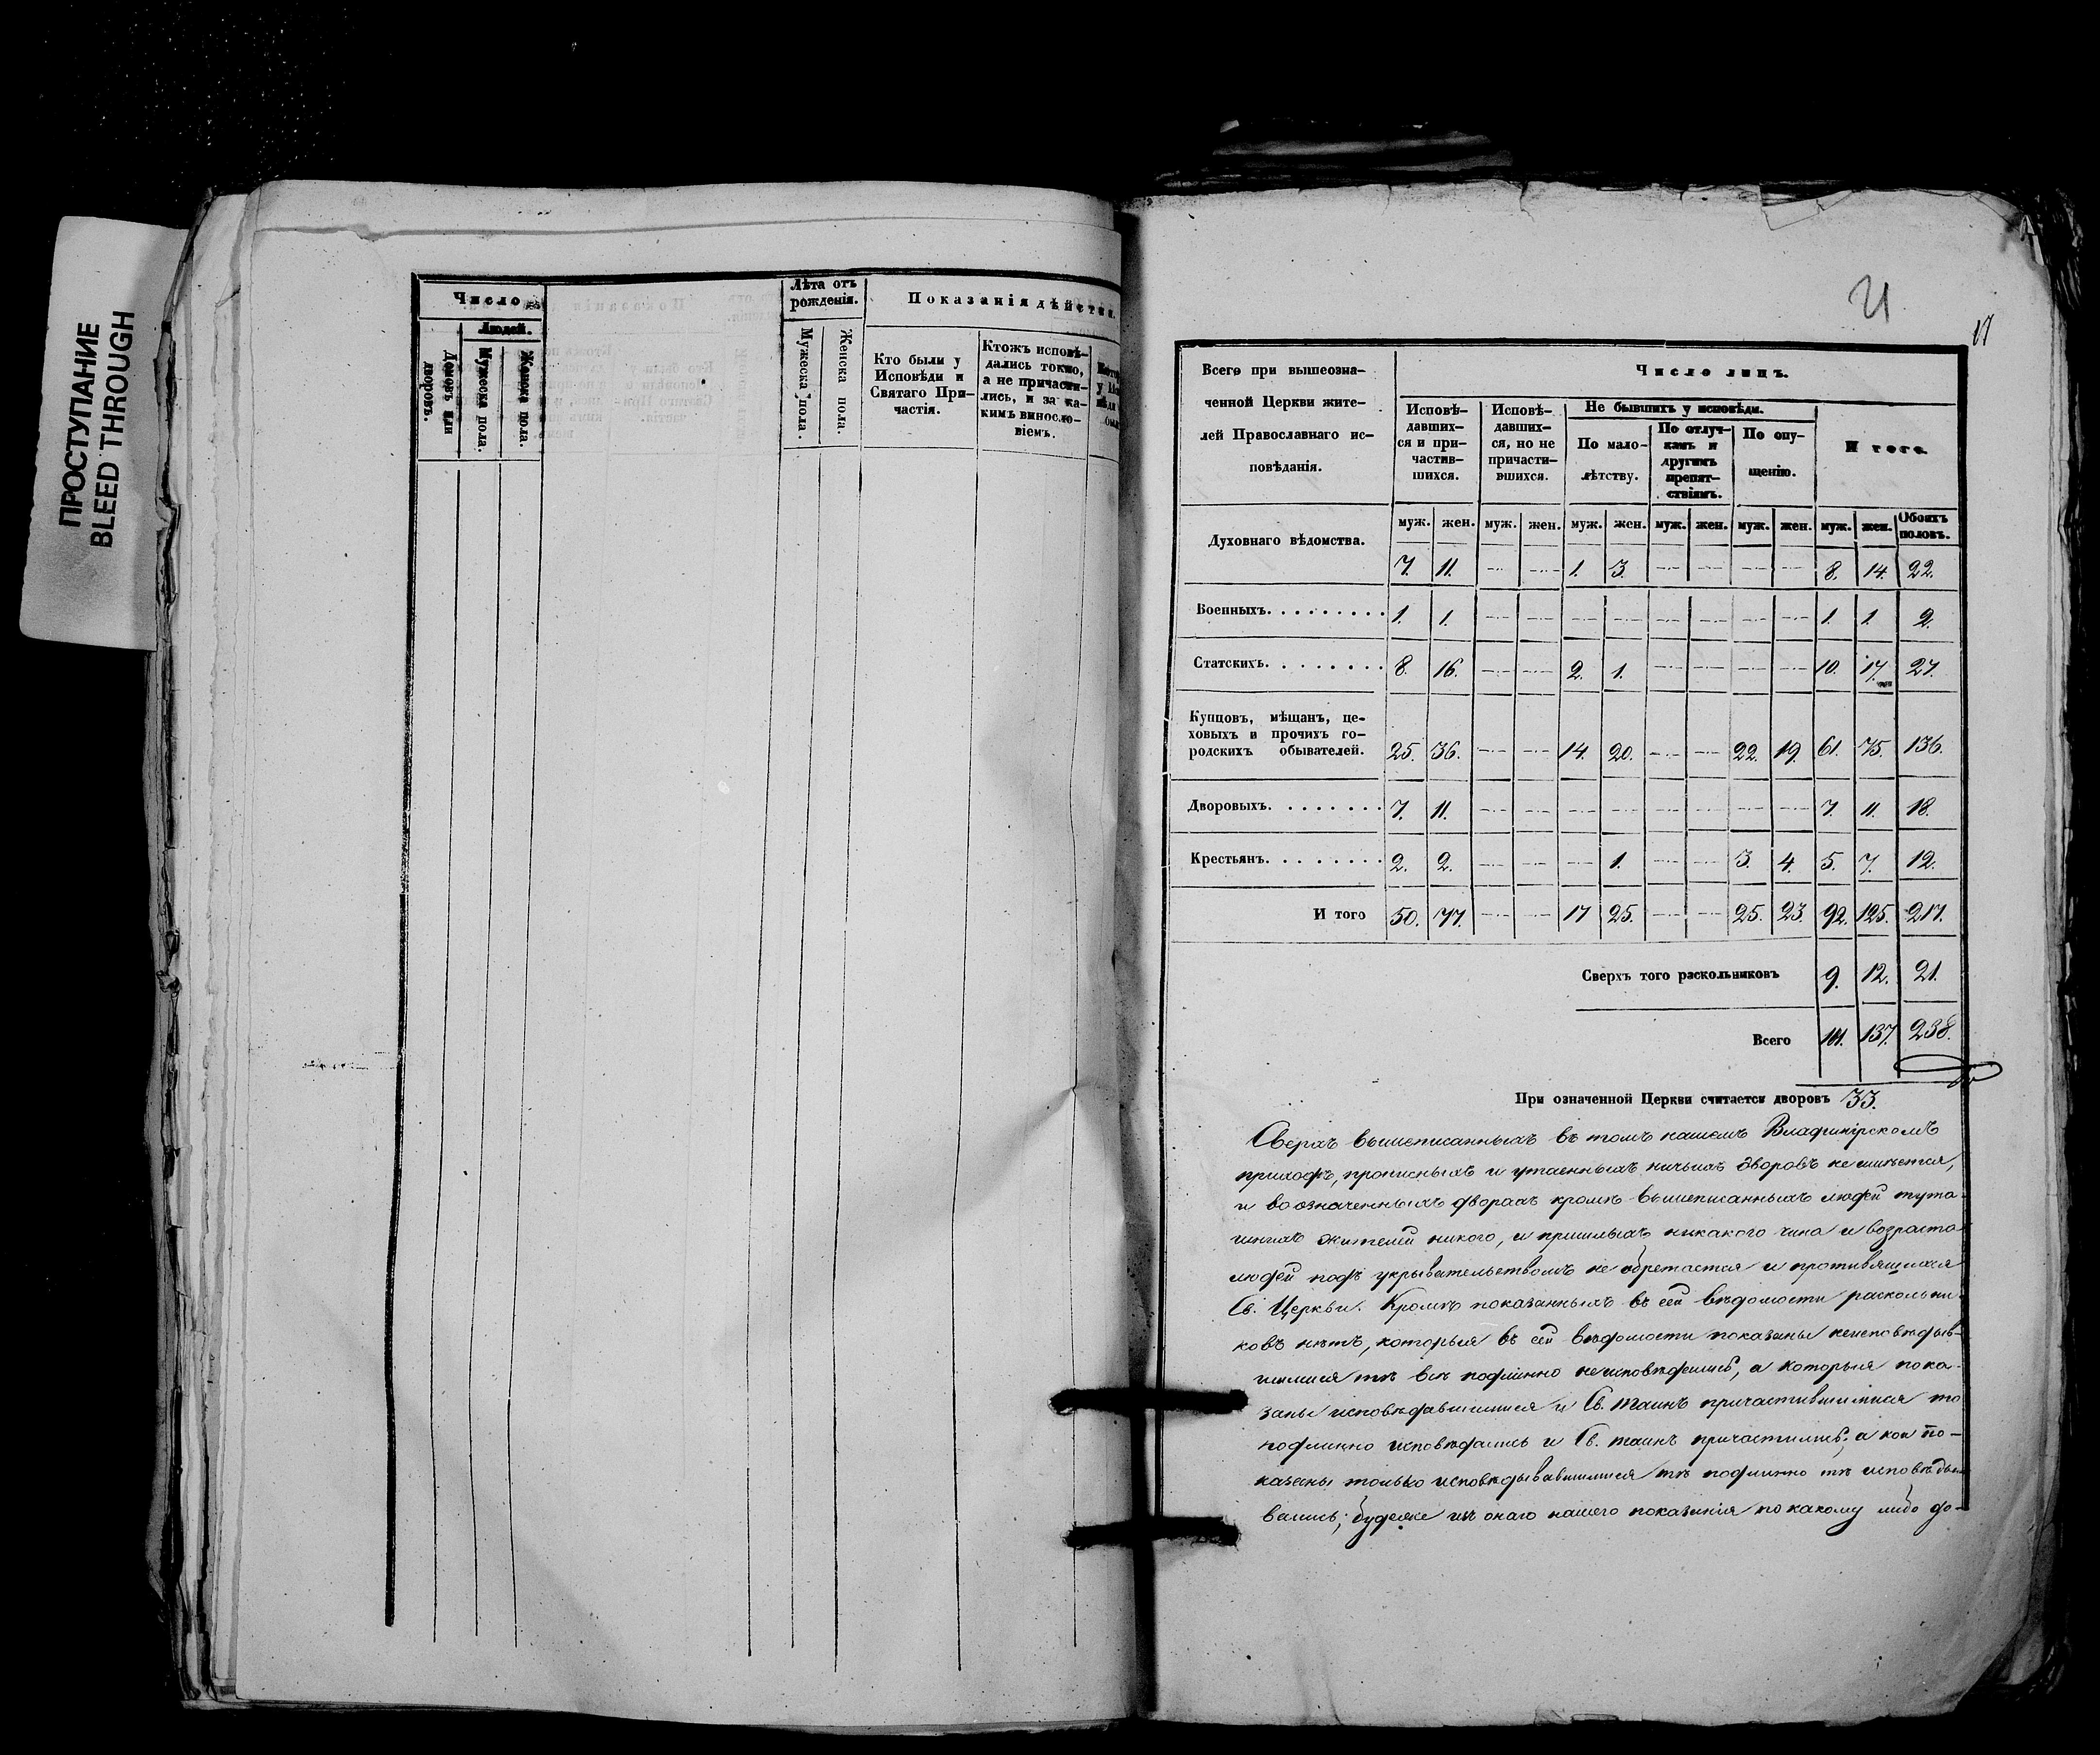 ПРОСТУПАНИЕ
BLEED THROUGH
Число
Людей.
Домовъ или дворовъ.
Мужеска пола.
Женска пола.
Лѣта отъ
рожденія.
Мужеска пола.
Женска пола.
Показанія дѣйстви
Кто были у
Исповѣди и
Святаго При-
частія.
Ктожъ исповѣ-
дались токмо,
а не причасти-
лись, и за ка-
кимъ винослο-
віемъ.
21
17
Всего при вышеозна-
ченной Церкви жите-
лей Православнаго ис-
повѣданія.
Число лицъ.
Исповѣ-
давших-
ся и при-
частив-
шихся.
Исповѣ-
давших-
ся, но не
причасти-
вшихся.
Не бывшихъ у исповѣди.
По мало-
лѣтству.
По отлуч-
камъ и
другимъ
препят-
ствіямъ.
По опу-
щенію.
И того.
муж. жен. муж. жен. муж. жен. муж. жен. муж. жен. муж. жен. Обоихъ половъ.
Духовнаго вѣдомства. 7. 11. — — 1. 3. — — — — 8. 14. 22.
Военныхъ. . . . . . . . . 1. 1. — — — — — — — — 1. 1. 2.
Статскихъ. . . . . . . . 8. 16. — — 2. 1. — — — — 10. 17. 27.
Купцовъ, мѣщанъ, це-
ховыхъ и прочихъ го-
родскихъ обывателей. 25. 36. — — 14. 20. — — 22. 19. 61. 75. 136.
Дворовыхъ. . . . . . . . 7. 11. — — — — — — — — 7. 11. 18.
Крестьянъ. . . . . . . . 2. 2. — — — 1. — — 3. 4. 5. 7. 12.
И того 50. 77. — — 17 25. — — 25. 23. 92. 125. 217.
Сверхъ того раскольниковъ 9. 12. 21.
Всего 101. 137. 238.
При означенной Церкви считается дворовъ 33.
Сверхъ вышеписанныхъ въ томъ нашемъ Владимірскомъ
приходѣ, прописныхъ и утаенныхъ ничьихъ дворовъ не имѣется,
и во означенныхъ дворахъ кромѣ вышеписанныхъ людей тута-
шнихъ жителей никого, и пришлыхъ никакого чина и возраста
людей подъ укрывательствомъ не обретается и противящихся
Св. Церкви. Кромѣ показанныхъ въ сей вѣдомости раскольни-
ковъ нѣтъ, которыя въ сей вѣдомости показаны неисповѣдыв-
шимися тѣ всѣ подлинно неисповѣдались, а которыя пока-
заны исповѣдавшимися и Св. Таинъ причастившимися то
подлинно исповѣдались и Св. таинъ причастились; а кои по-
казаны только исповѣдывавшимися тѣ подлинно тѣ исповѣды-
вались; будеже изъ онаго нашего показанія по какому либо до-